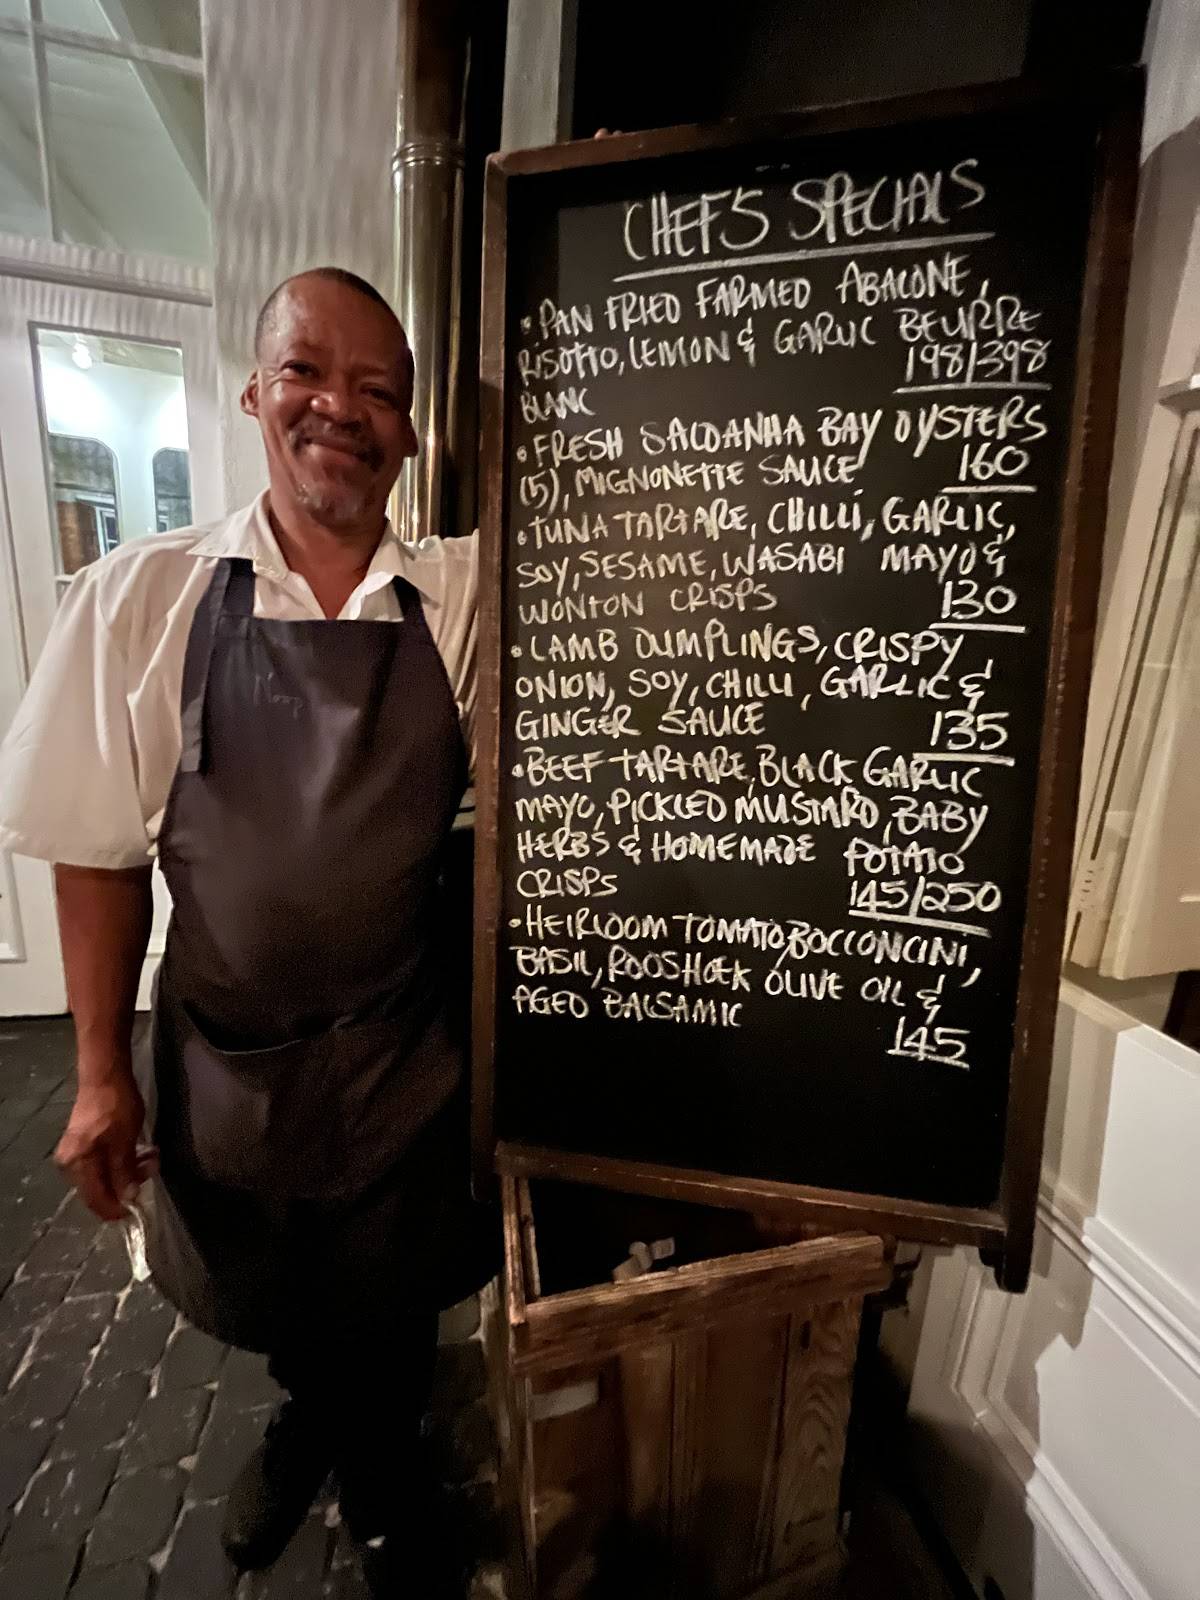 CHEF'S SPECIALS
• PAN FRIED FARMED ABALONE,
RISOTTO, LEMON & GARLIC BEURRE
BLANC 198/398
• FRESH SALDANHA BAY OYSTERS
(5), MIGNONETTE SAUCE 160
• TUNA TARTARE, CHILLI, GARLIC,
SOY, SESAME, WASABI MAYO &
WONTON CRISPS 130
• LAMB DUMPLINGS, CRISPY
ONION, SOY, CHILLI, GARLIC &
GINGER SAUCE 135
• BEEF TARTARE, BLACK GARLIC
MAYO, PICKLED MUSTARD, BABY
HERBS & HOMEMADE POTATO
CRISPS 145/250
• HEIRLOOM TOMATO, BOCCONCINI,
BASIL, ROOSHOEK OLIVE OIL &
AGED BALSAMIC 145
Noop